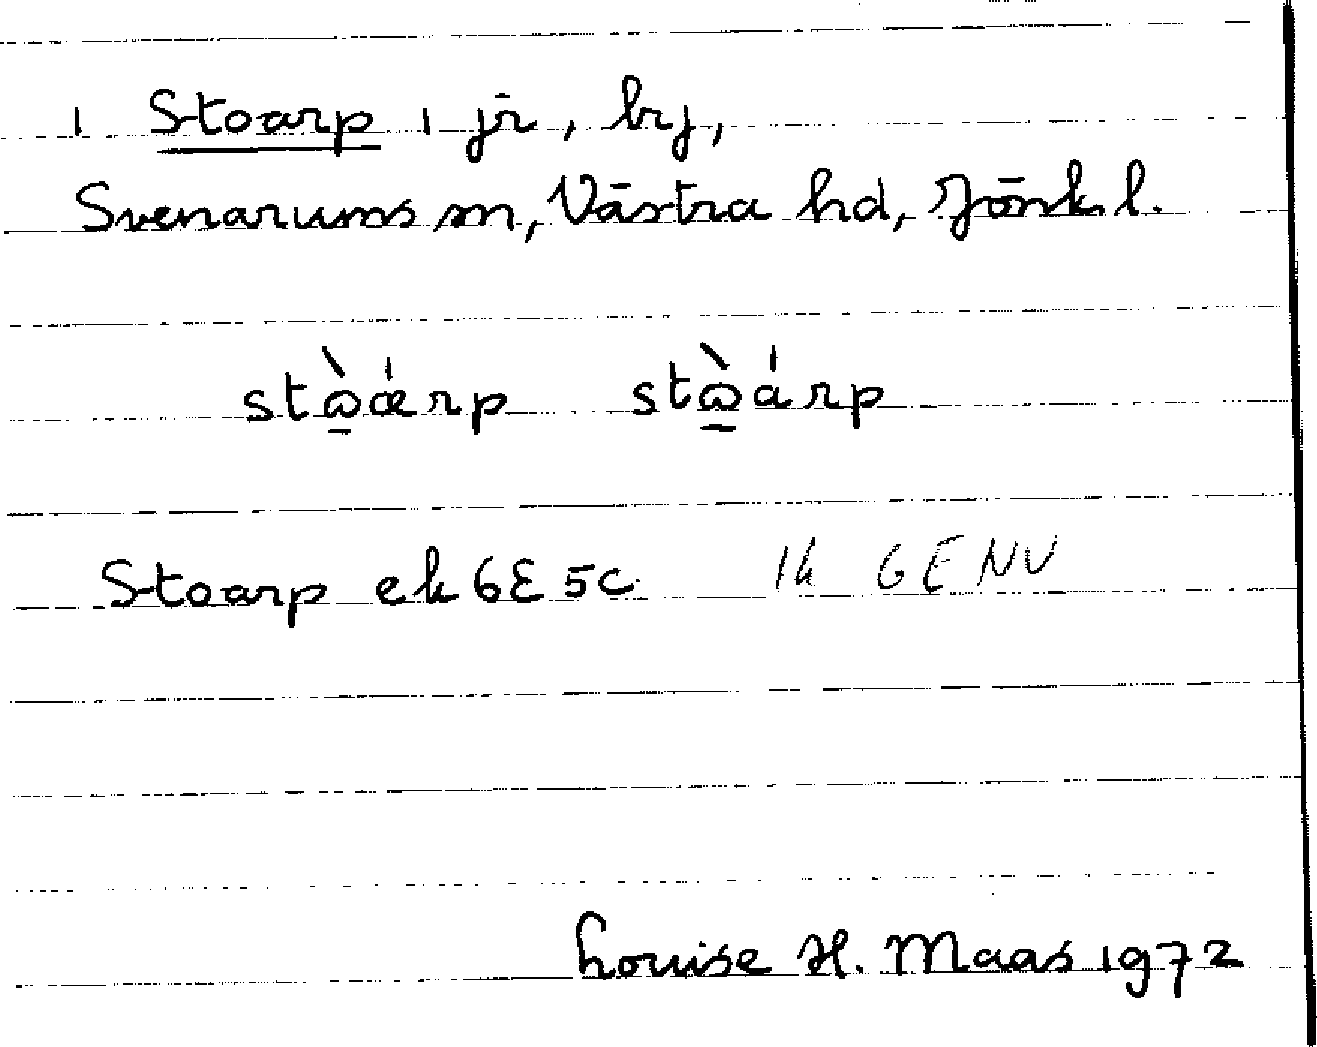 1 Stoarp 1 jr, brj,
Svenarums sn, Västra hd, Jönk. l.
stὼǽrp stὼárp
Stoarp ek 6E 5c 1h GENV
Louise H. Maas 1972